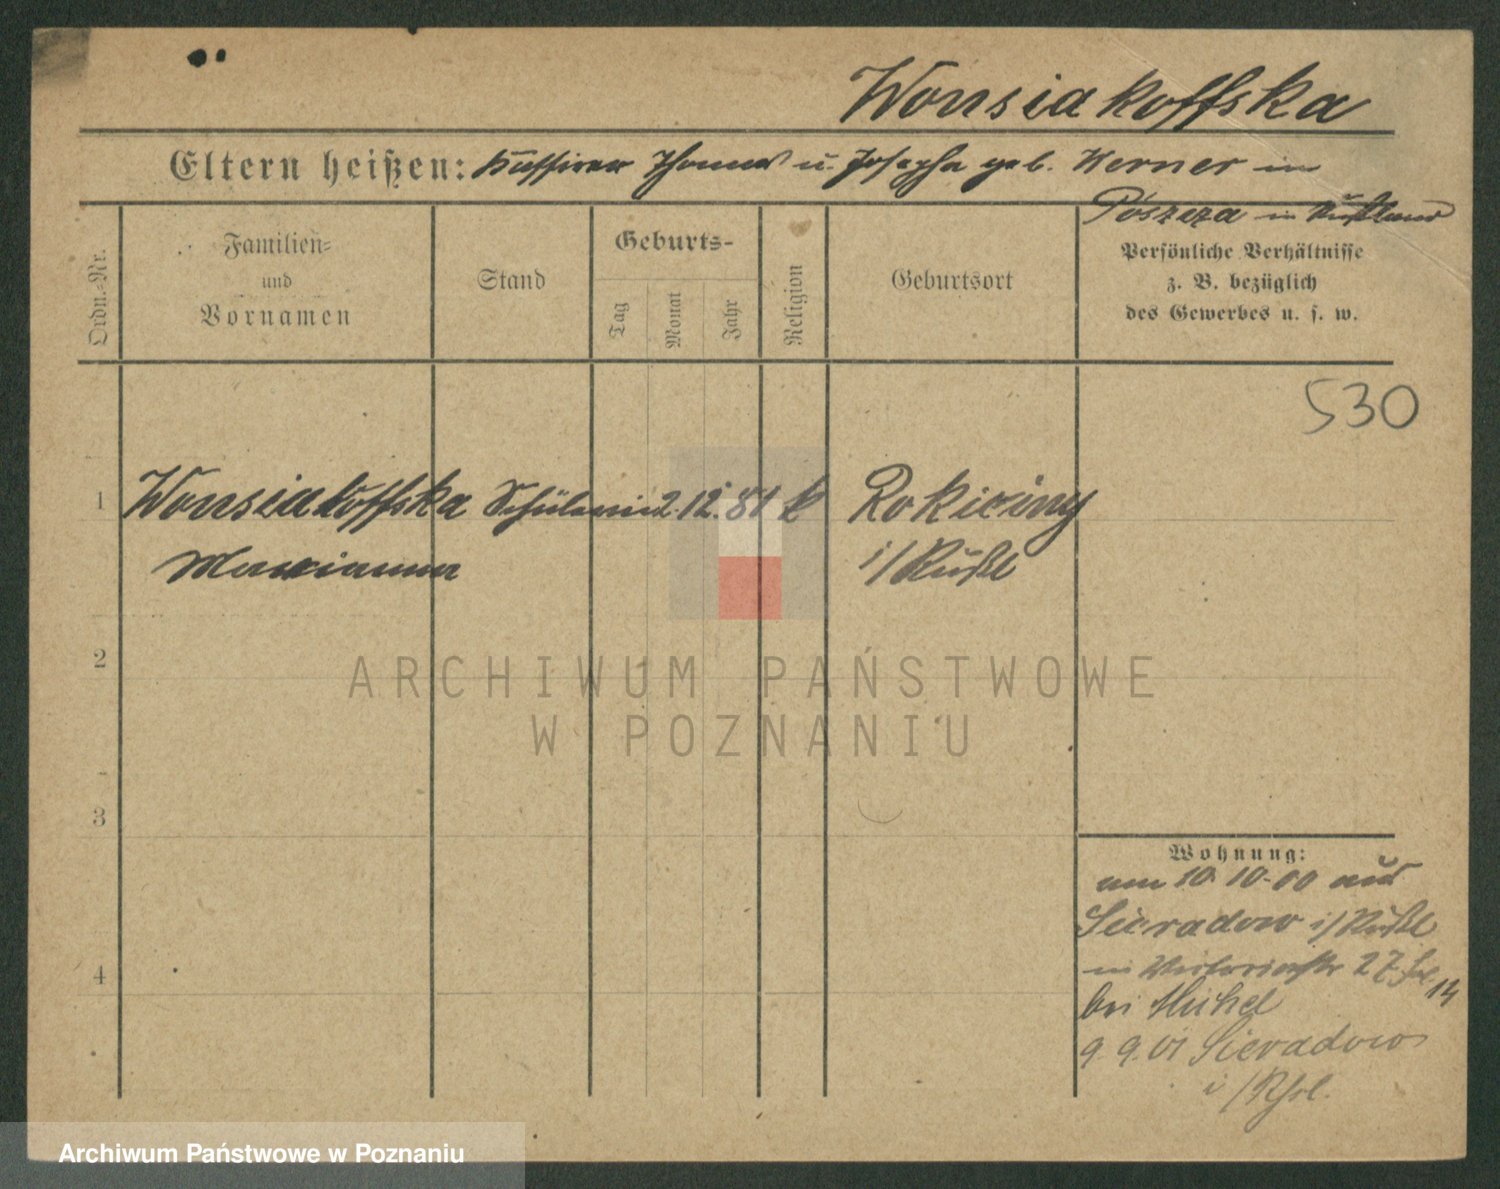 Wonsiakoffska
Eltern heißen: Kassirer Thomas u. Josepha geb. Werner in
Poszeza in Rußland
Ordn.-Nr.
Familien-
und
Vornamen
Stand
Geburts-
Tag
Monat
Jahr
Religion
Geburtsort
Persönliche Verhältnisse
z. B. bezüglich
des Gewerbes u. s. w.
530
1 Wonsiakoffska Schülerin 2. 12. 81 k Rokiciny
Marianna i/Rußl
2
ARCHIWUM PAŃSTWOWE
W POZNANIU
3
Wohnung:
am 10. 10. 00 aus
Sieradow i/Rußl
in Victoriastr 27
14
bei Michel
9. 9. 01 Sieradow
i/Rßl.
4
Archiwum Państwowe w Poznaniu